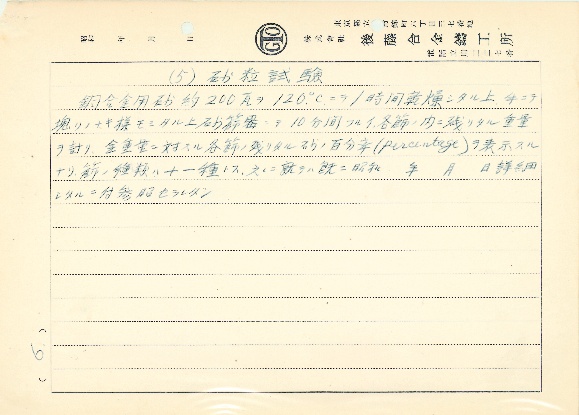 昭和 年 月 日
株式会社 後藤合金鋳工所
(5) 砂粒試験
銅合金用砂約200瓦ヲ120°Cニテ1時間乾燥シタル上手ニテ
塊リノナキ様モミタル上砂篩器ニテ10分間フルイ各篩ノ内ニ残リタル重量
ヲ計リ、全重量ニ対スル各篩ノ残リタル砂ノ百分率(percentage)ヲ表示スル
ナリ、篩ノ種類ハ十一種トス、之ニ就テハ既ニ昭和 年 月 日詳細
シタルニ付参照セラレタシ
(6)